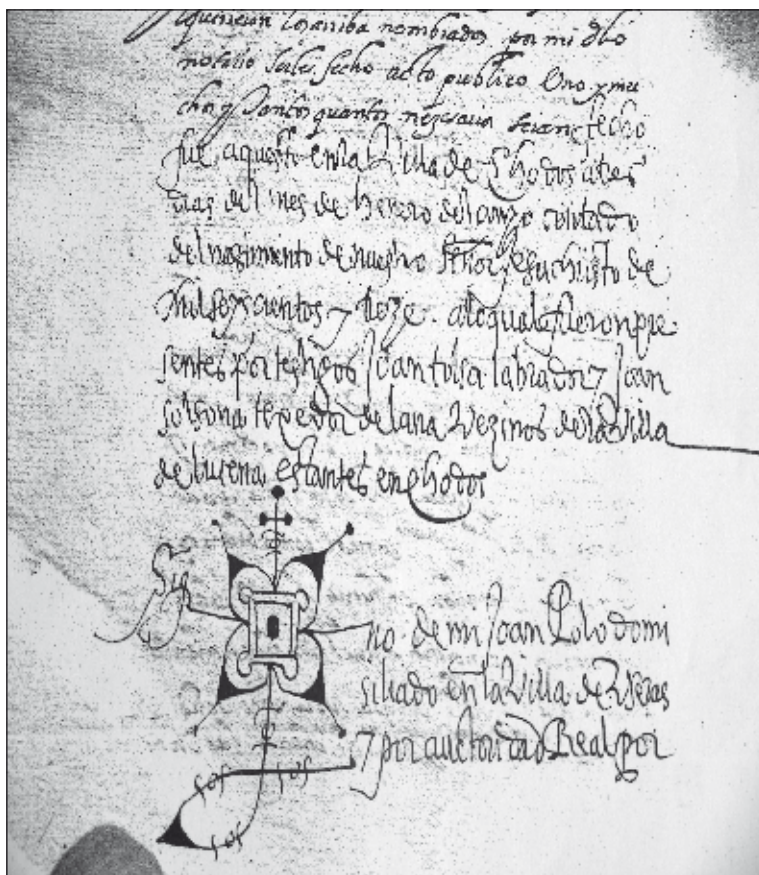 quirieran los arriba nombrados por mi dho
notario seales fecho acto publico Uno y mu
chos y tantos quantos nezesaria seran fecho
fue aquesto en la Villa de Chodos a tres
dias del mes de henero del anyo contado
del nascimento de nuestro Señor Jesuchristo de
Mil seyscientos y doze. a lo qual fueron pre
sentes por testigos Joan tolsa labrador y Joan
solsona texedor de lana Vezinos de la Villa
de lucena estantes en chodos
Sig
no de mi Joan Polo domi
siliado en la Villa de Useras
y por auctoridad Real por